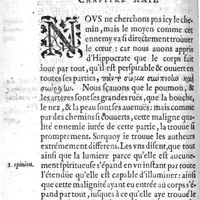 CHAPITRE XXII.
NOVS ne cherchons pas icy le che
min, mais le moyen comme cet
ennemy va si directement trouuer
le cœur: car nous auons appris
d'Hippocrate que le corps fut
iour par tout, qu'il est perspirable & ouuert en
toutes ses parties,
Nous sçauons que le poumon, &
les arteres sont ses grandes ruës, que la bouche,
le nez, & la peau sont ses auenuës: mais com
par des chemins si couuerts, cette maligne qua
lité ennemie iurée de cette partie, la trouue si
promptement. Surquoy ie trouue les autheurs
extremement differens. Les vns disent, que tout
ainsi que la lumiere parce qu'elle est aucune
ment spirituelle s'épand en vn instant par toute
l'étenduë qu'elle est capable d'illuminer: ainsi
que cette malignité ayant eu entrée au corps s'é
pand par tout, iusques à ce qu'elle
1. opinion.